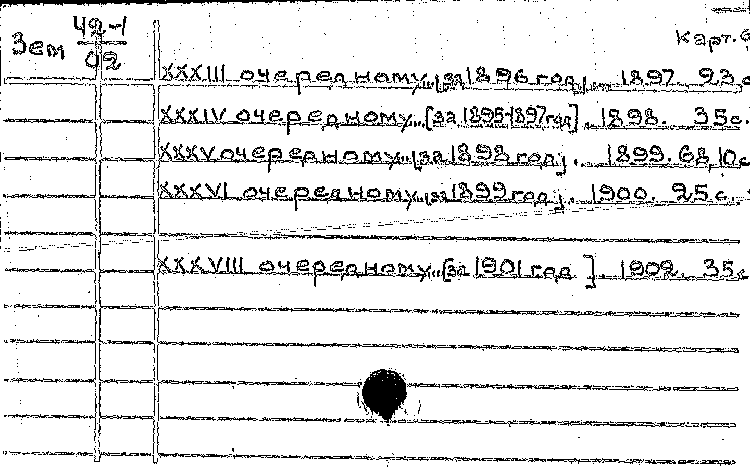 Зем 42-1
02
Карт. 6
XXXIII очередному.. [за 1896 год]. 1897. 93 с
XXXIV очередному.. [за 1895-1897 год]. 1898. 35с.
XXXV очередному.. [за 1898 год]. 1899. 68,10с
XXXVI очередному.. [за 1899 год]. 1900. 25 с.
XXXVIII очередному.. [за 1901 год ]. 1902. 35с